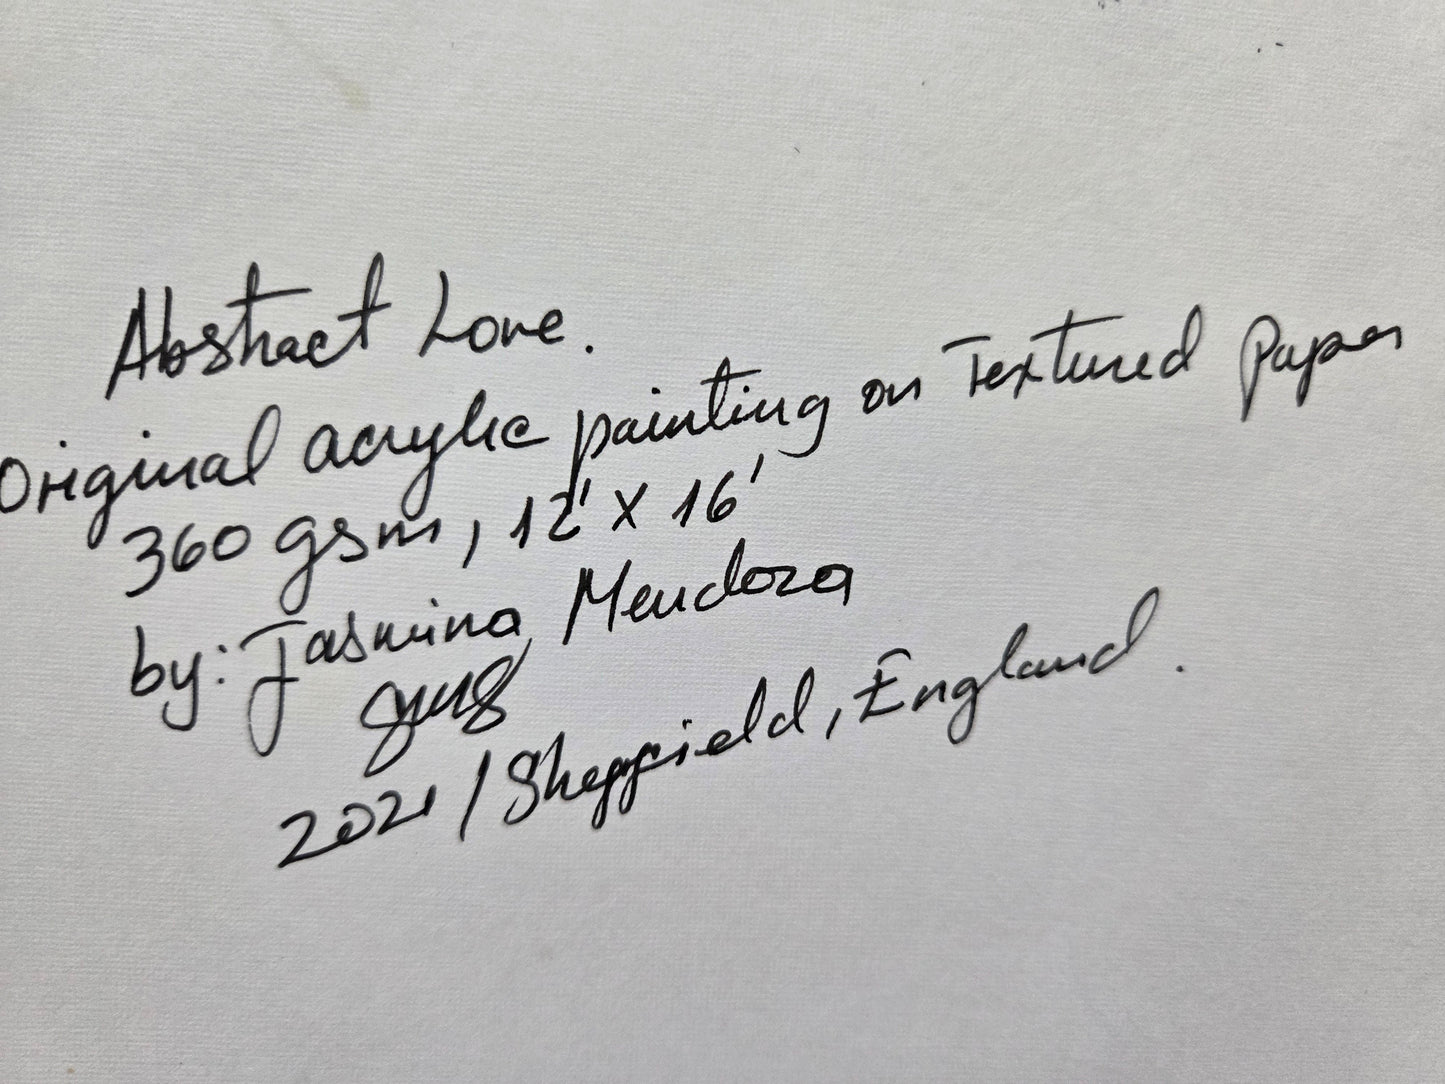 Abstract Love.
Original acrylic painting on Textured Paper
360 gsm, 12' x 16'
by: Jasmina Mendoza
2021 / Sheffield, England.